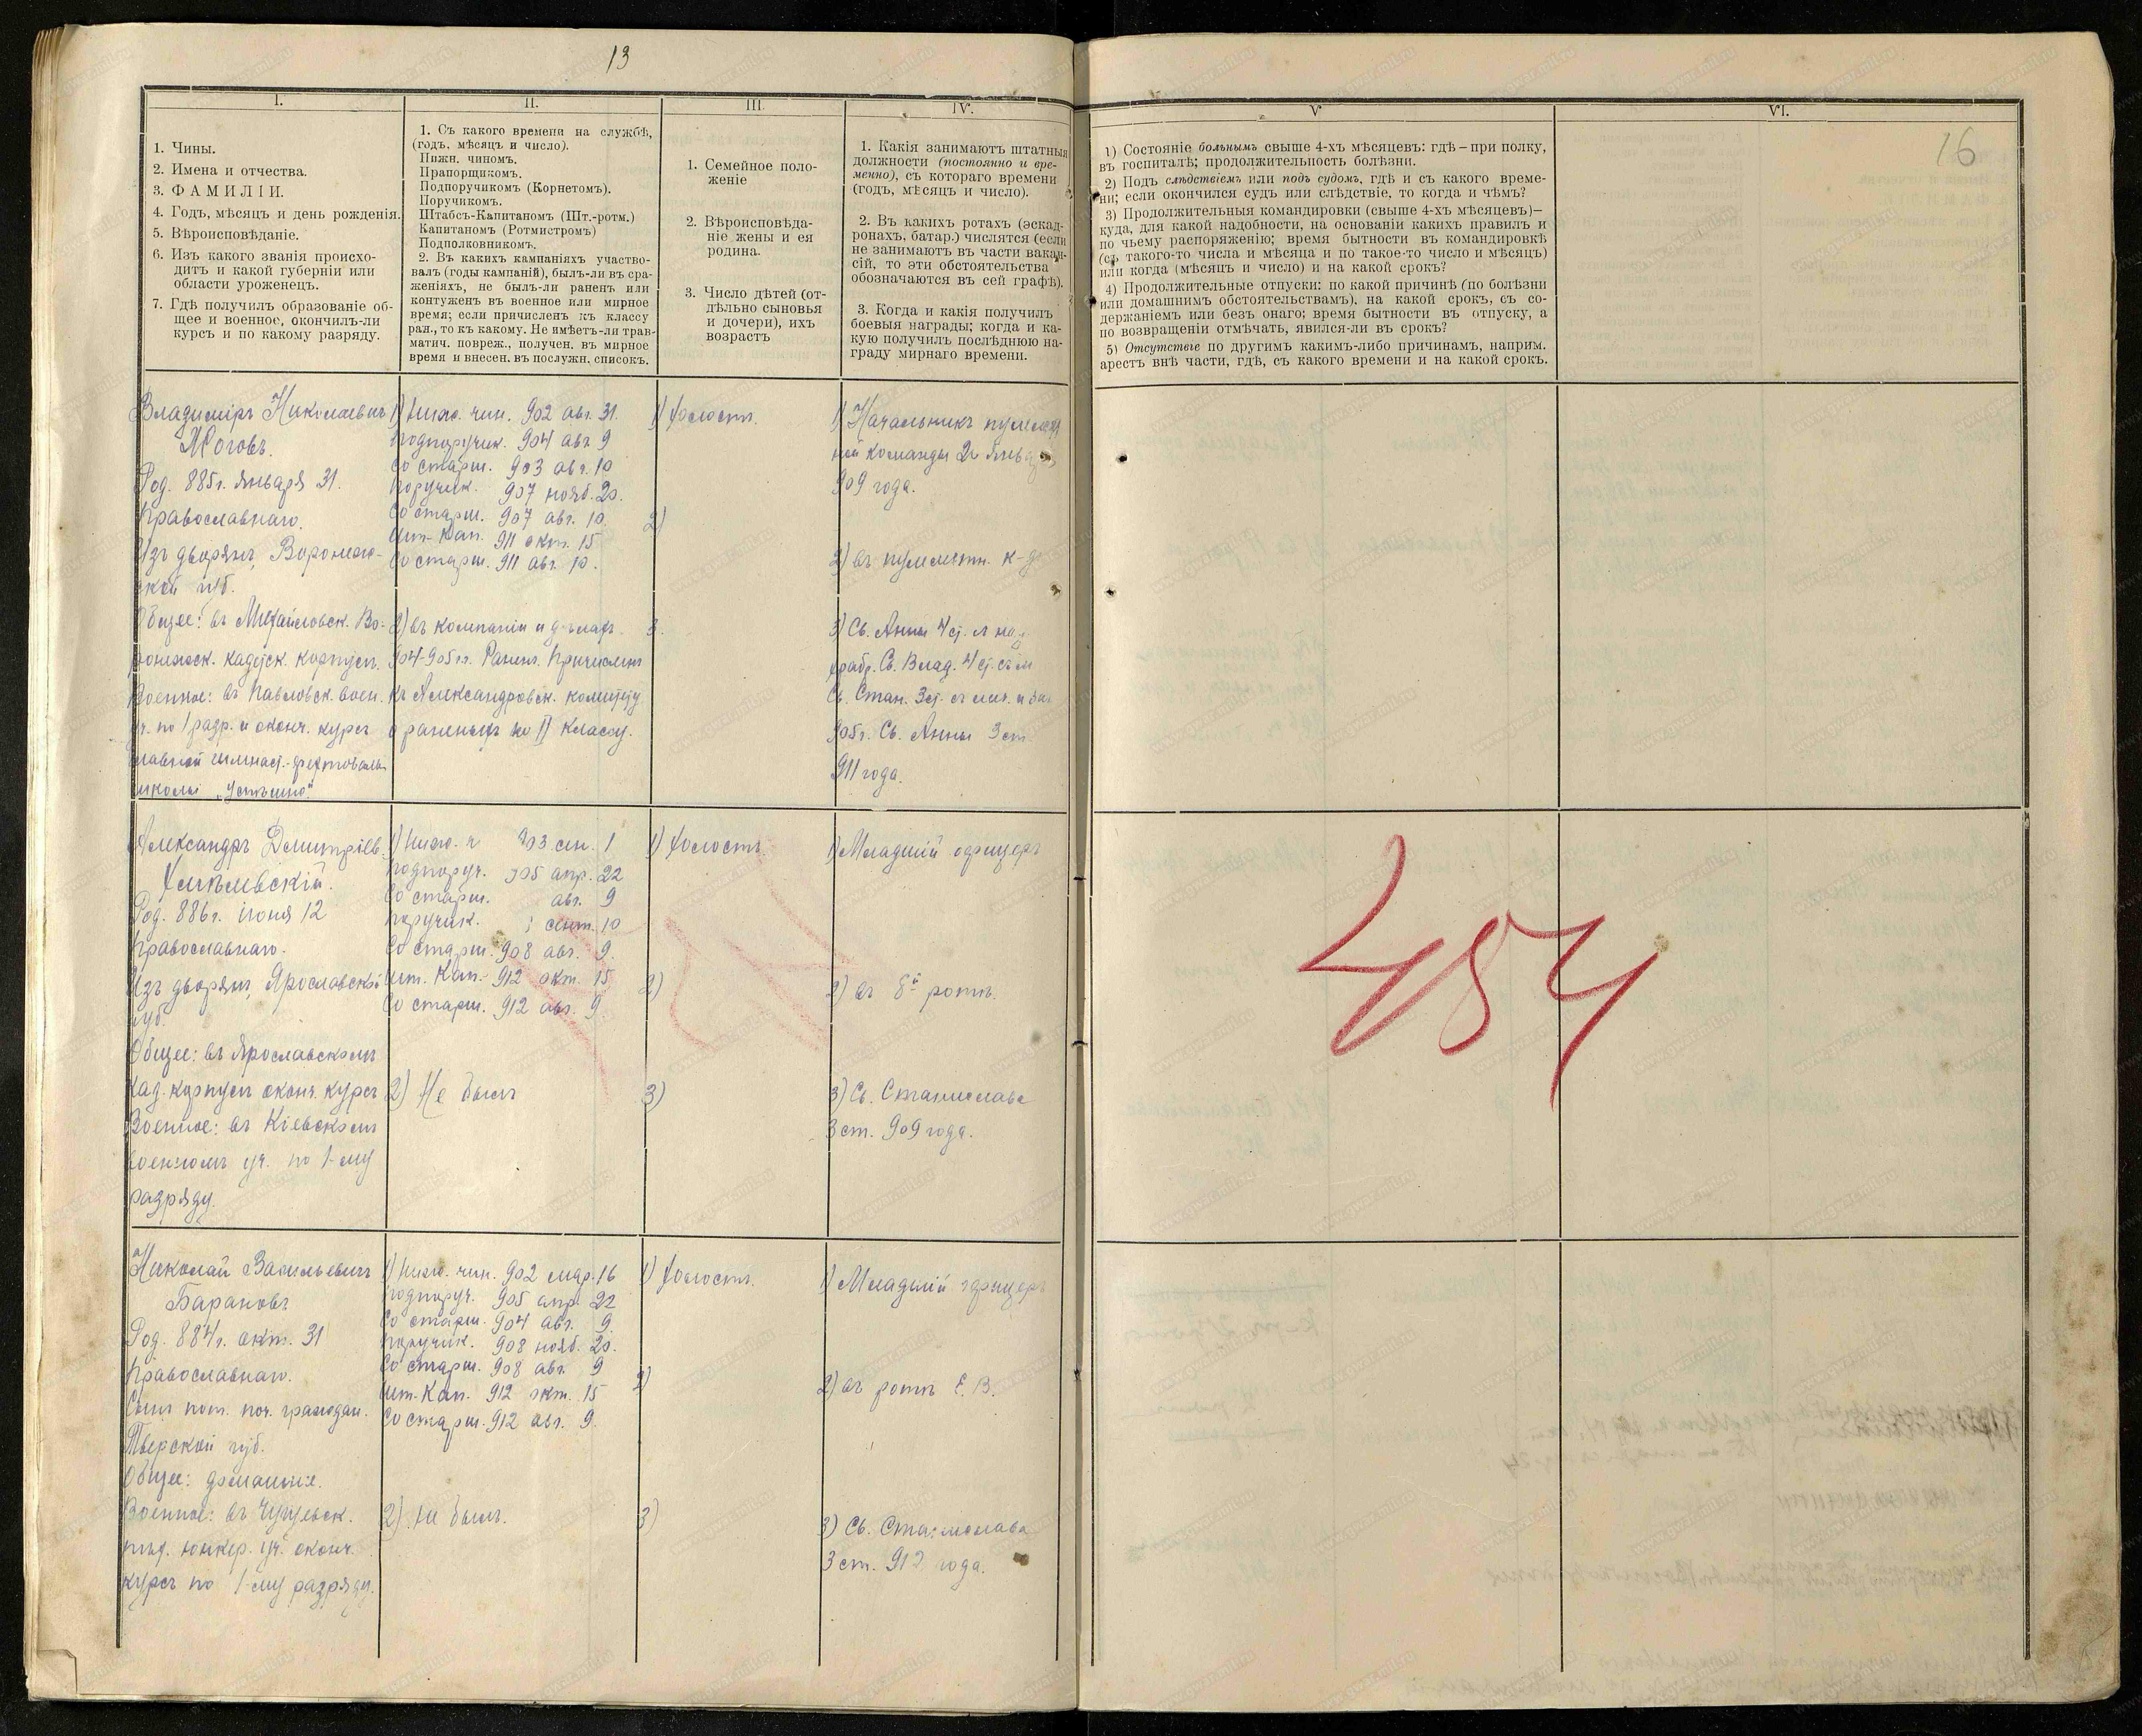 13
16
I.
1. Чины.
2. Имена и отчества.
3. ФАМИЛІИ.
4. Годъ, мѣсяцъ и день рожденія.
5. Вѣроисповѣданіе.
6. Изъ какого званія происхо-
дитъ и какой губерніи или
области уроженецъ.
7. Гдѣ получилъ образованіе об-
щее и военное, окончилъ-ли
курсъ и по какому разряду.
II.
1. Съ какого времени на службѣ,
(годъ, мѣсяцъ и число).
Нижн. чиномъ.
Прапорщикомъ.
Подпоручикомъ (Корнетомъ).
Поручикомъ.
Штабсъ-Капитаномъ (Шт.-ротм.)
Капитаномъ (Ротмистромъ)
Подполковникомъ.
2. Въ какихъ кампаніяхъ участво-
валъ (годы кампаній), былъ-ли въ сра-
женіяхъ, не былъ-ли раненъ или
контуженъ въ военное или мирное
время; если причисленъ къ классу
ран., то къ какому. Не имѣетъ-ли трав-
матич. повреж., получен. въ мирное
время и внесен. въ послужн. списокъ.
III.
1. Семейное поло-
женіе
2. Вѣроисповѣда-
ніе жены и ея
родина.
3. Число дѣтей (от-
дѣльно сыновья
и дочери), ихъ
возрастъ
IV.
1. Какія занимаютъ штатныя
должности (постоянно и вре-
менно), съ котораго времени
(годъ, мѣсяцъ и число).
2. Въ какихъ ротахъ (эскад-
ронахъ, батар.) числятся (если
не занимаютъ въ части вакан-
сій, то эти обстоятельства
обозначаются въ сей графѣ).
3. Когда и какія получилъ
боевыя награды; когда и ка-
кую получилъ послѣднюю на-
граду мирнаго времени.
V
1) Состояніе больнымъ свыше 4-хъ мѣсяцевъ: гдѣ—при полку,
въ госпиталѣ; продолжительность болѣзни.
2) Подъ слѣдствіемъ или подъ судомъ, гдѣ и съ какого време-
ни; если окончился судъ или слѣдствіе, то когда и чѣмъ?
3) Продолжительныя командировки (свыше 4-хъ мѣсяцевъ)—
куда, для какой надобности, на основаніи какихъ правилъ и
по чьему распоряженію; время бытности въ командировкѣ
(съ такого-то числа и мѣсяца и по такое-то число и мѣсяцъ)
или когда (мѣсяцъ и число) и на какой срокъ?
4) Продолжительные отпуски: по какой причинѣ (по болѣзни
или домашнимъ обстоятельствамъ), на какой срокъ, съ со-
держаніемъ или безъ онаго; время бытности въ отпуску, а
по возвращеніи отмѣчать, явился-ли въ срокъ?
5) Отсутствіе по другимъ какимъ-либо причинамъ, наприм.
арестъ внѣ части, гдѣ, съ какого времени и на какой срокъ.
VI.
Владиміръ Николаевичъ
Род. 885г. Января 31.
Православнаго.
Изъ дворянъ, Воронеж-
ской губ.
Общее: въ Михайловск. Во-
ронежск. кадетск. корпусѣ.
Военное: въ Павловск. воен.
уч. по 1 разр. и оконч. курсъ
главной гимнаст.-фехтоваль
школы „успѣшно"
1) Ниж. чин. 902 авг. 31.
Подпоручик. 904 авг. 9
Со старш. 903 авг. 10
Поручик. 907 нояб. 20.
Со старш. 907 авг. 10.
Шт.-Кап. 911 окт. 15
Со старш. 911 авг. 10.
2) въ компаніи и дѣлахъ
904-905 гг. Раненъ. Причисленъ
къ Александровск. комитету
о раненыхъ ко II классу.
1) Холостъ.
2)
3.
1) Начальникъ пулемет
ной команды 2го Января
909 года.
2) въ пулеметн. к-дѣ
3) Св. Анны 4 ст. над.
храбр. Св. Влад. 4 ст. съ м
Св. Стан. 3 ст. съ меч. и бан
905г. Св. Анны 3 ст.
911 года.
Александръ Дмитріев.
Хмѣлевскій.
Род. 886г. іюня 12
Православнаго.
Изъ дворянъ, Ярославской
губ.
Общее: въ Ярославскомъ
кад. корпусѣ оконч. курсъ
Военное: въ Кіевскомъ
военномъ уч. по 1-му
разряду.
1) Ниж. ч 903 сен. 1
Подпоруч. 905 апр. 22
Со старш. авг. 9
Поручик. сент. 10
Со старш. 908 авг. 9.
Шт. Кап. 912 окт. 15
Со старш. 912 авг. 9.
2) Не былъ
1) Холостъ.
2)
3)
1) Младшій офицеръ
2) въ 8й ротѣ.
3) Св. Станислава
3 ст. 909 года.
454
Николай Васильевичъ
Барановъ
Род. 884г. окт. 31
Православнаго.
Сынъ пот. поч. граждан.
Тверской губ.
Общее: домашнее.
Военное: въ Чугуевск.
пѣх. юнкер. уч. оконч.
курсъ по 1-му разряду.
1) Ниж. чин. 902 мар. 16
Подпоруч. 905 апр. 22
Со старш. 904 авг. 9.
Поручик. 908 нояб. 20.
Со старш. 908 авг. 9
Шт. Кап. 912 окт. 15
Со старш. 912 авг. 9.
2) Не былъ.
1) Холостъ.
2)
3)
1) Младшій офицеръ
2) въ ротѣ Е. В.
3) Св. Станислава
3 ст. 912 года.